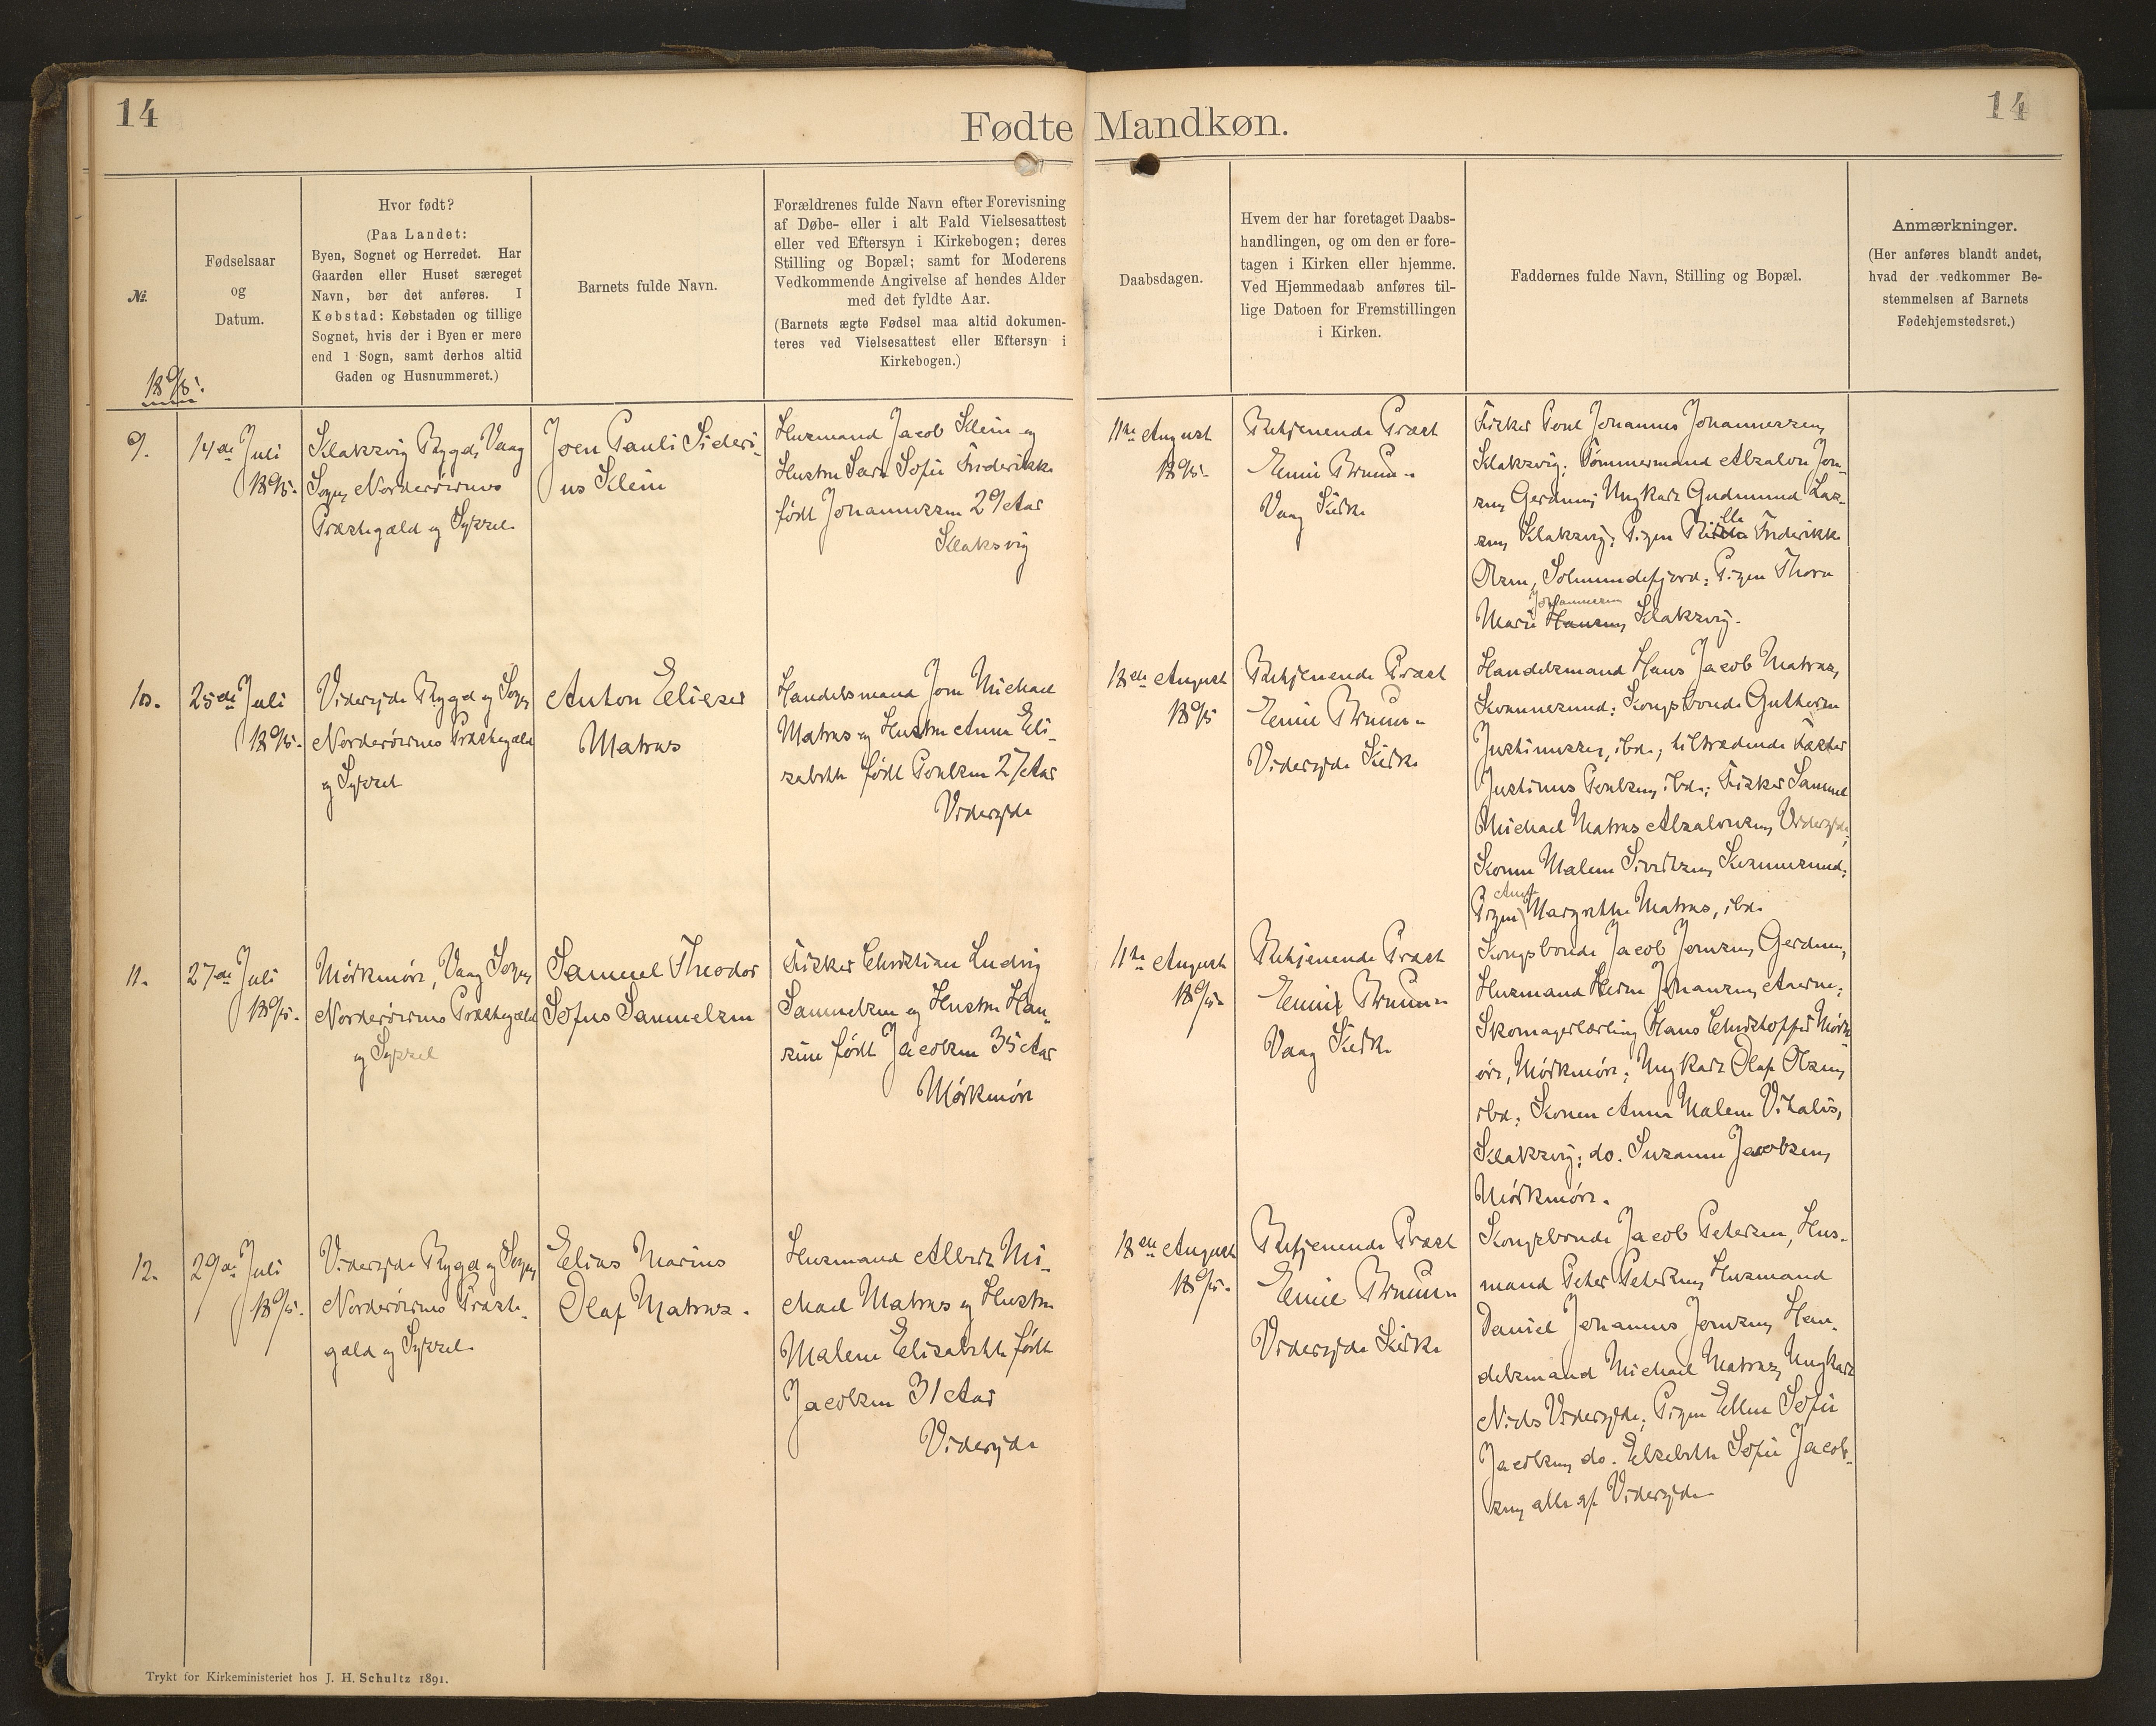 14
Fødte Mandkøn.
14
No.
Fødselsaar
og
Datum.
Hvor født?
(Paa Landet:
Byen, Sognet og Herredet. Har
Gaarden eller Huset særeget
Navn, bør det anføres. I
Købstad: Købstaden og tillige
Sognet, hvis der i Byen er mere
end 1 Sogn, samt derhos altid
Gaden og Husnummeret.)
Barnets fulde Navn.
Forældrenes fulde Navn efter Forevisning
af Døbe- eller i alt Fald Vielsesattest
eller ved Eftersyn i Kirkebogen; deres
Stilling og Bopæl; samt for Moderens
Vedkommende Angivelse af hendes Alder
med det fyldte Aar.
(Barnets ægte Fødsel maa altid dokumen-
teres ved Vielsesattest eller Eftersyn i
Kirkebogen.)
Daabsdagen.
Hvem der har foretaget Daabs-
handlingen, og om den er fore-
tagen i Kirken eller hjemme.
Ved Hjemmedaab anføres til-
lige Datoen for Fremstillingen
i Kirken.
Faddernes fulde Navn, Stilling og Bopæl.
Anmærkninger.
(Her anføres blandt andet,
hvad der vedkommer Be-
stemmelsen af Barnets
Fødehjemstedsret.)
1895.
9.
14de Juli
1895.
Klaksvig Bygd, Vaag
Sogn, Norderøernes
Præstegæld og Syssel
Joen Pauli Sideri-
us Klein
Husmand Jacob Klein og
Hustru Sara Sofie Frederikke
født Johannessen 29 Aar
Klaksvig
11te August
1895.
Betjenende Præst
Emil Bruun.
Vaag Kirke
Fisker Poul Johannes Johannessen,
Klaksvig; Tømmermand Absalon Joen-
sen, Gerdum; Ungkarl Gudmund Las-
sen, Klaksvig; Pigen Frederikke
Olsen, Solmundefjord; Pigen Thora
Johannessen
Marie Hansen, Klaksvig.
10.
25de Juli
1895.
Viderejde Bygd og Sogn
Norderøernes Præstegæld
og Syssel
Anton Elieser
Matras
Handelsmand Joen Michael
Matras og Hustru Anna Eli-
sabeth født Poulsen 27 Aar
Viderejde
18de August
1895
Betjenende Præst
Emil Bruun.
Viderejde Kirke
Handelsmand Hans Jacob Matras,
Kvannesund; Kongsbonde Guttorm
Justinussen, ibd.; tiltrædende Fæster
Justinus Poulsen, ibd.; Fisker Samuel
Michael Matras Absalonsen, Viderejde;
Konen Malene Sivertsen, Kvannesund;
Pigen Margrethe Matras, ibd.
11.
27de Juli
1895.
Mørkmøre, Vaag Sogn
Norderøernes Præstegæld
og Syssel
Samuel Theodor
Sofus Samuelsen
Fisker Christian Ludvig
Samuelsen og Hustru Han-
sine født Jacobsen 35 Aar
Mørkmøre
11te August
1895.
Betjenende Præst
Emil Bruun.
Vaag Kirke
Kongsbonde Jacob Joensen, Gerdum;
Husmand Johansen, Aarne;
Skomagerlærling Hans Christoffer Mørk-
øre, Mørkmøre; Ungkarl Olaf Olsen,
ibd.; Konen Anna Malene Vitalis,
Klaksvig; do. Susanne Jacobsen,
Mørkmøre.
12.
29de Juli
1895.
Viderejde Bygd og Sogn,
Norderøernes Præste-
gæld og Syssel
Elias Marius
Olaf Matras.
Husmand Albert Mi-
chael Matras og Hustru
Malene Elisabeth født
Jacobsen 31 Aar
Viderejde
18de August
1895.
Betjenende Præst
Emil Bruun.
Viderejde Kirke
Kongsbonde Jacob Petersen, Hus-
mand Peter Petersen, Husmand
Daniel Johannes Joensen, Han-
delsmand Michael Matras, Ungkarl
Niels Viderejde; Pigen Ellen Sofie
Jacobsen, do. Elsebeth Sofie Jacob-
sen, alle af Viderejde
Trykt for Kirkeministeriet hos J. H. Schultz 1891.